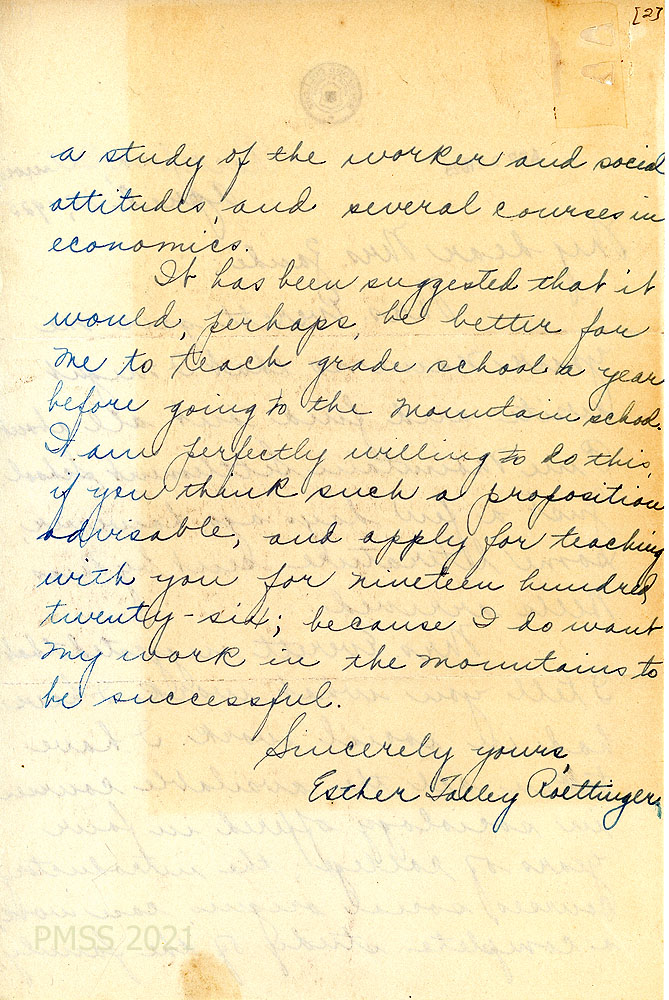 [2]
a study of the worker and social
attitudes, and several courses in
economics.
It has been suggested that it
would, perhaps, be better for
me to teach grade school a year
before going to the mountain school.
I am perfectly willing to do this,
if you think such a proposition
advisable, and apply for teaching
with you for nineteen hundred
twenty-six; because I do want
my work in the mountains to
be successful.
Sincerely yours,
Esther Talley Roettinger.
PMSS 2021